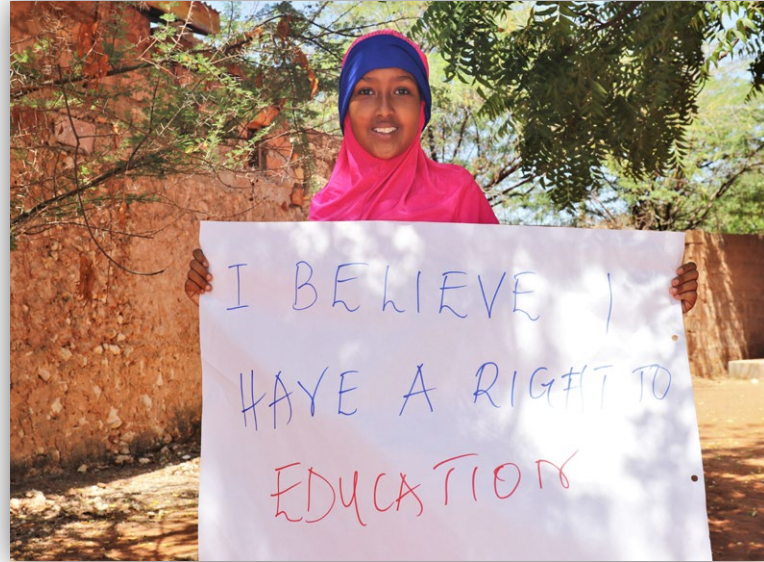 I BELIEVE I
HAVE A RIGHT TO
EDUCATION